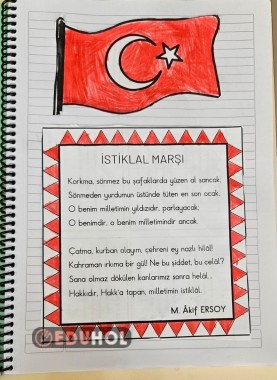 İSTİKLAL MARŞI
Korkma, sönmez bu şafaklarda yüzen al sancak;
Sönmeden yurdumun üstünde tüten en son ocak.
O benim milletimin yıldızıdır, parlayacak;
O benimdir, o benim milletimindir ancak.
Çatma, kurban olayım, çehreni ey nazlı hilâl!
Kahraman ırkıma bir gül! Ne bu şiddet, bu celâl?
Sana olmaz dökülen kanlarımız sonra helâl...
Hakkıdır, Hakk'a tapan, milletimin istiklâl.
M. Âkif ERSOY
EDUHOL